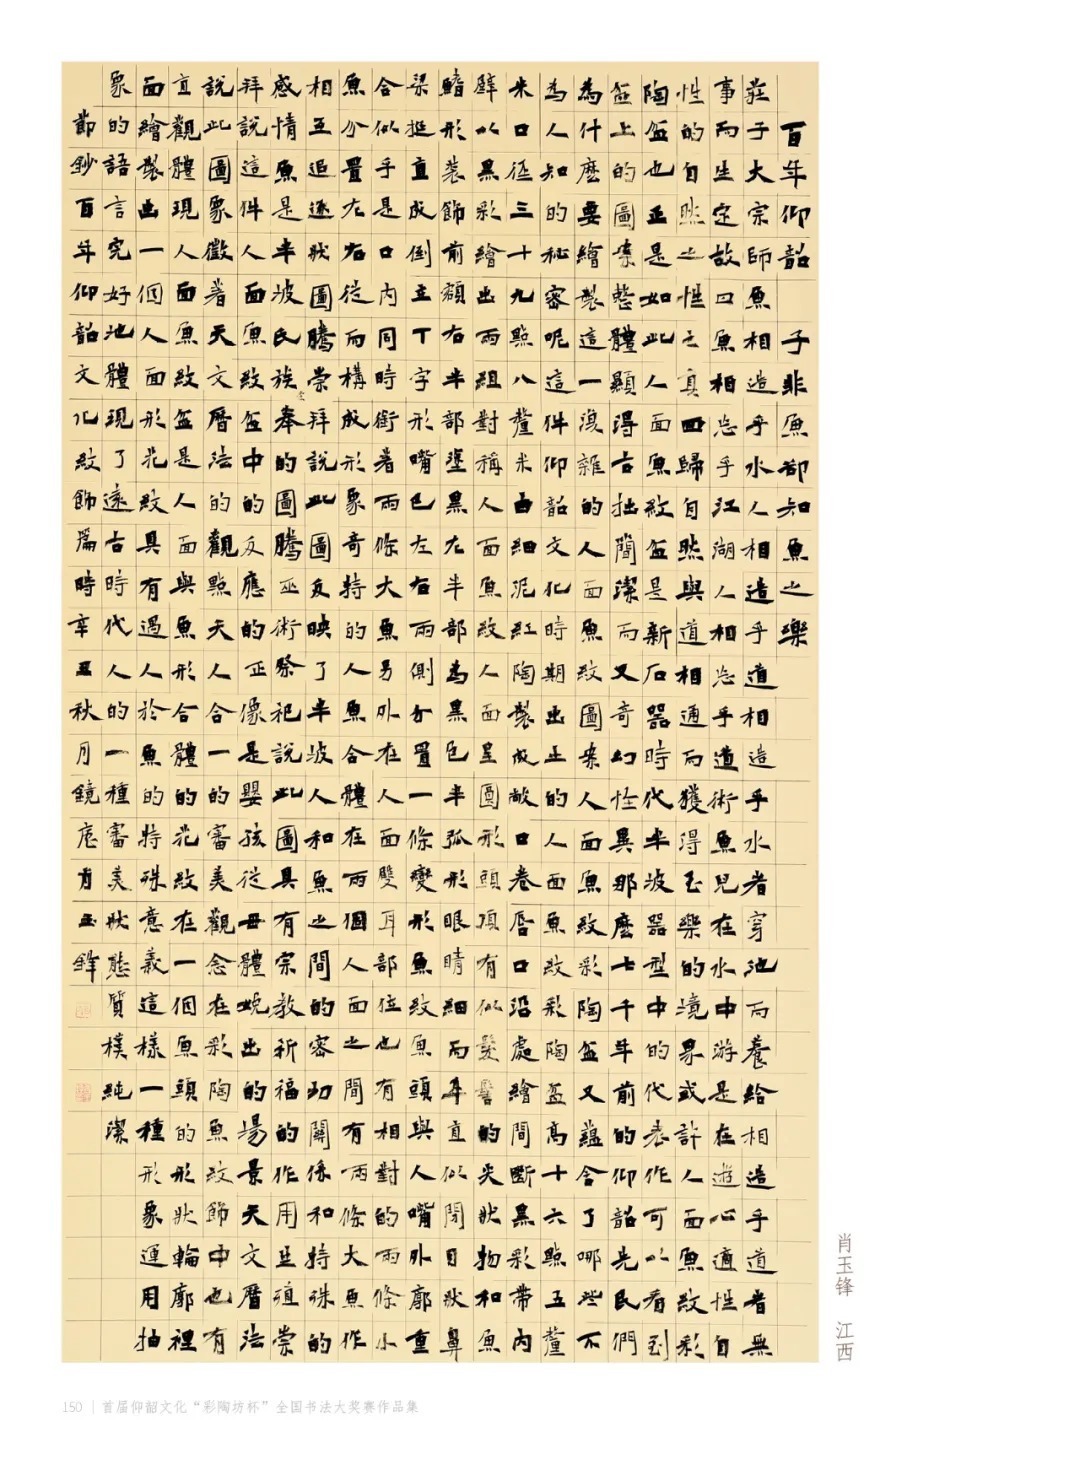 百年仰韶　子非魚卻知魚之樂
莊子大宗師魚相造乎水人相造乎道相造乎水者穿池而養給相造乎道者無
事而生定故曰魚相忘乎江湖人相忘乎道術魚兒在水中游是在遊心適性自
性的自然之性之真回歸自然與道相通而獲得至樂的境界或許人面魚紋彩
陶盆也正是如此人面魚紋盆是新石器時代半坡器型中的代表作可以看到
盆上的圖案整體顯得古拙簡潔而又奇幻性異那麼七千年前的仰韶先民們
為什麼要繪製這一複雜的人面魚紋圖案人面魚紋彩陶盆又蘊含了哪些不
為人知的秘密呢這件仰韶文化時期出土的人面魚紋彩陶盆高十六點五釐
米口徑三十九點八釐米由細泥紅陶製成敞口卷唇口沿處繪間斷黑彩帶內
壁以黑彩繪出兩組對稱人面魚紋人面呈圓形頭頂有似髮髻的尖狀物和魚
鰭形裝飾前額右半部塗黑左半部為黑色半弧形眼睛細而平直似閉目狀鼻
梁挺直成倒立丁字形嘴巴左右兩側分置一條變形魚紋魚頭與人嘴外廓重
合似乎是口內同時銜著兩條大魚另外在人面雙耳部位也有相對的兩條小
魚分置左右從而構成形象奇特的人魚合體在兩個人面之間有兩條大魚作
相互追逐狀圖騰崇拜說此圖反映了半坡人和魚之間的密切關係和特殊的
感情魚是半坡氏族奉的圖騰巫術祭祀說此圖具有宗教祈福的作用生殖崇
拜說這件人面魚紋盆中的反應的正像是嬰孩從母體娩出的場景天文曆法
說此圖象徵著天文曆法的觀點天人合一的審美觀念在彩陶魚紋飾中也有
直觀體現人面魚紋盆是人面與魚形合體的花紋在一個魚頭的形狀輪廓裡
面繪製出一個人面形花紋具有過人於魚的特殊意義這樣一種形象運用抽
象的語言究好地體現了遠古時代人的一種審美狀態質樸純潔
節鈔百年仰韶文化紋飾篇時辛丑秋月鏡庵肖玉鋒
肖玉锋　江西
150 | 首届仰韶文化“彩陶坊杯”全国书法大奖赛作品集